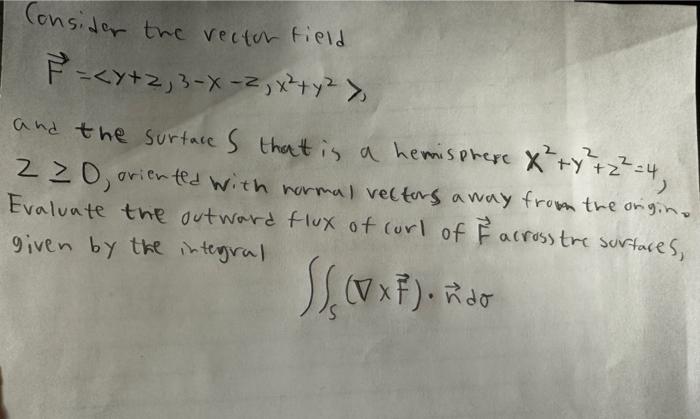 Consider the vector field
F⃗ = <y+z, 3-x-z, x²+y²>,
and the surface S that is a hemisphere x²+y²+z²=4,
z ≥ 0, oriented with normal vectors away from the origin.
Evaluate the outward flux of curl of F⃗ across the surfaces,
given by the integral
∬_S (∇×F⃗)·n⃗ dσ